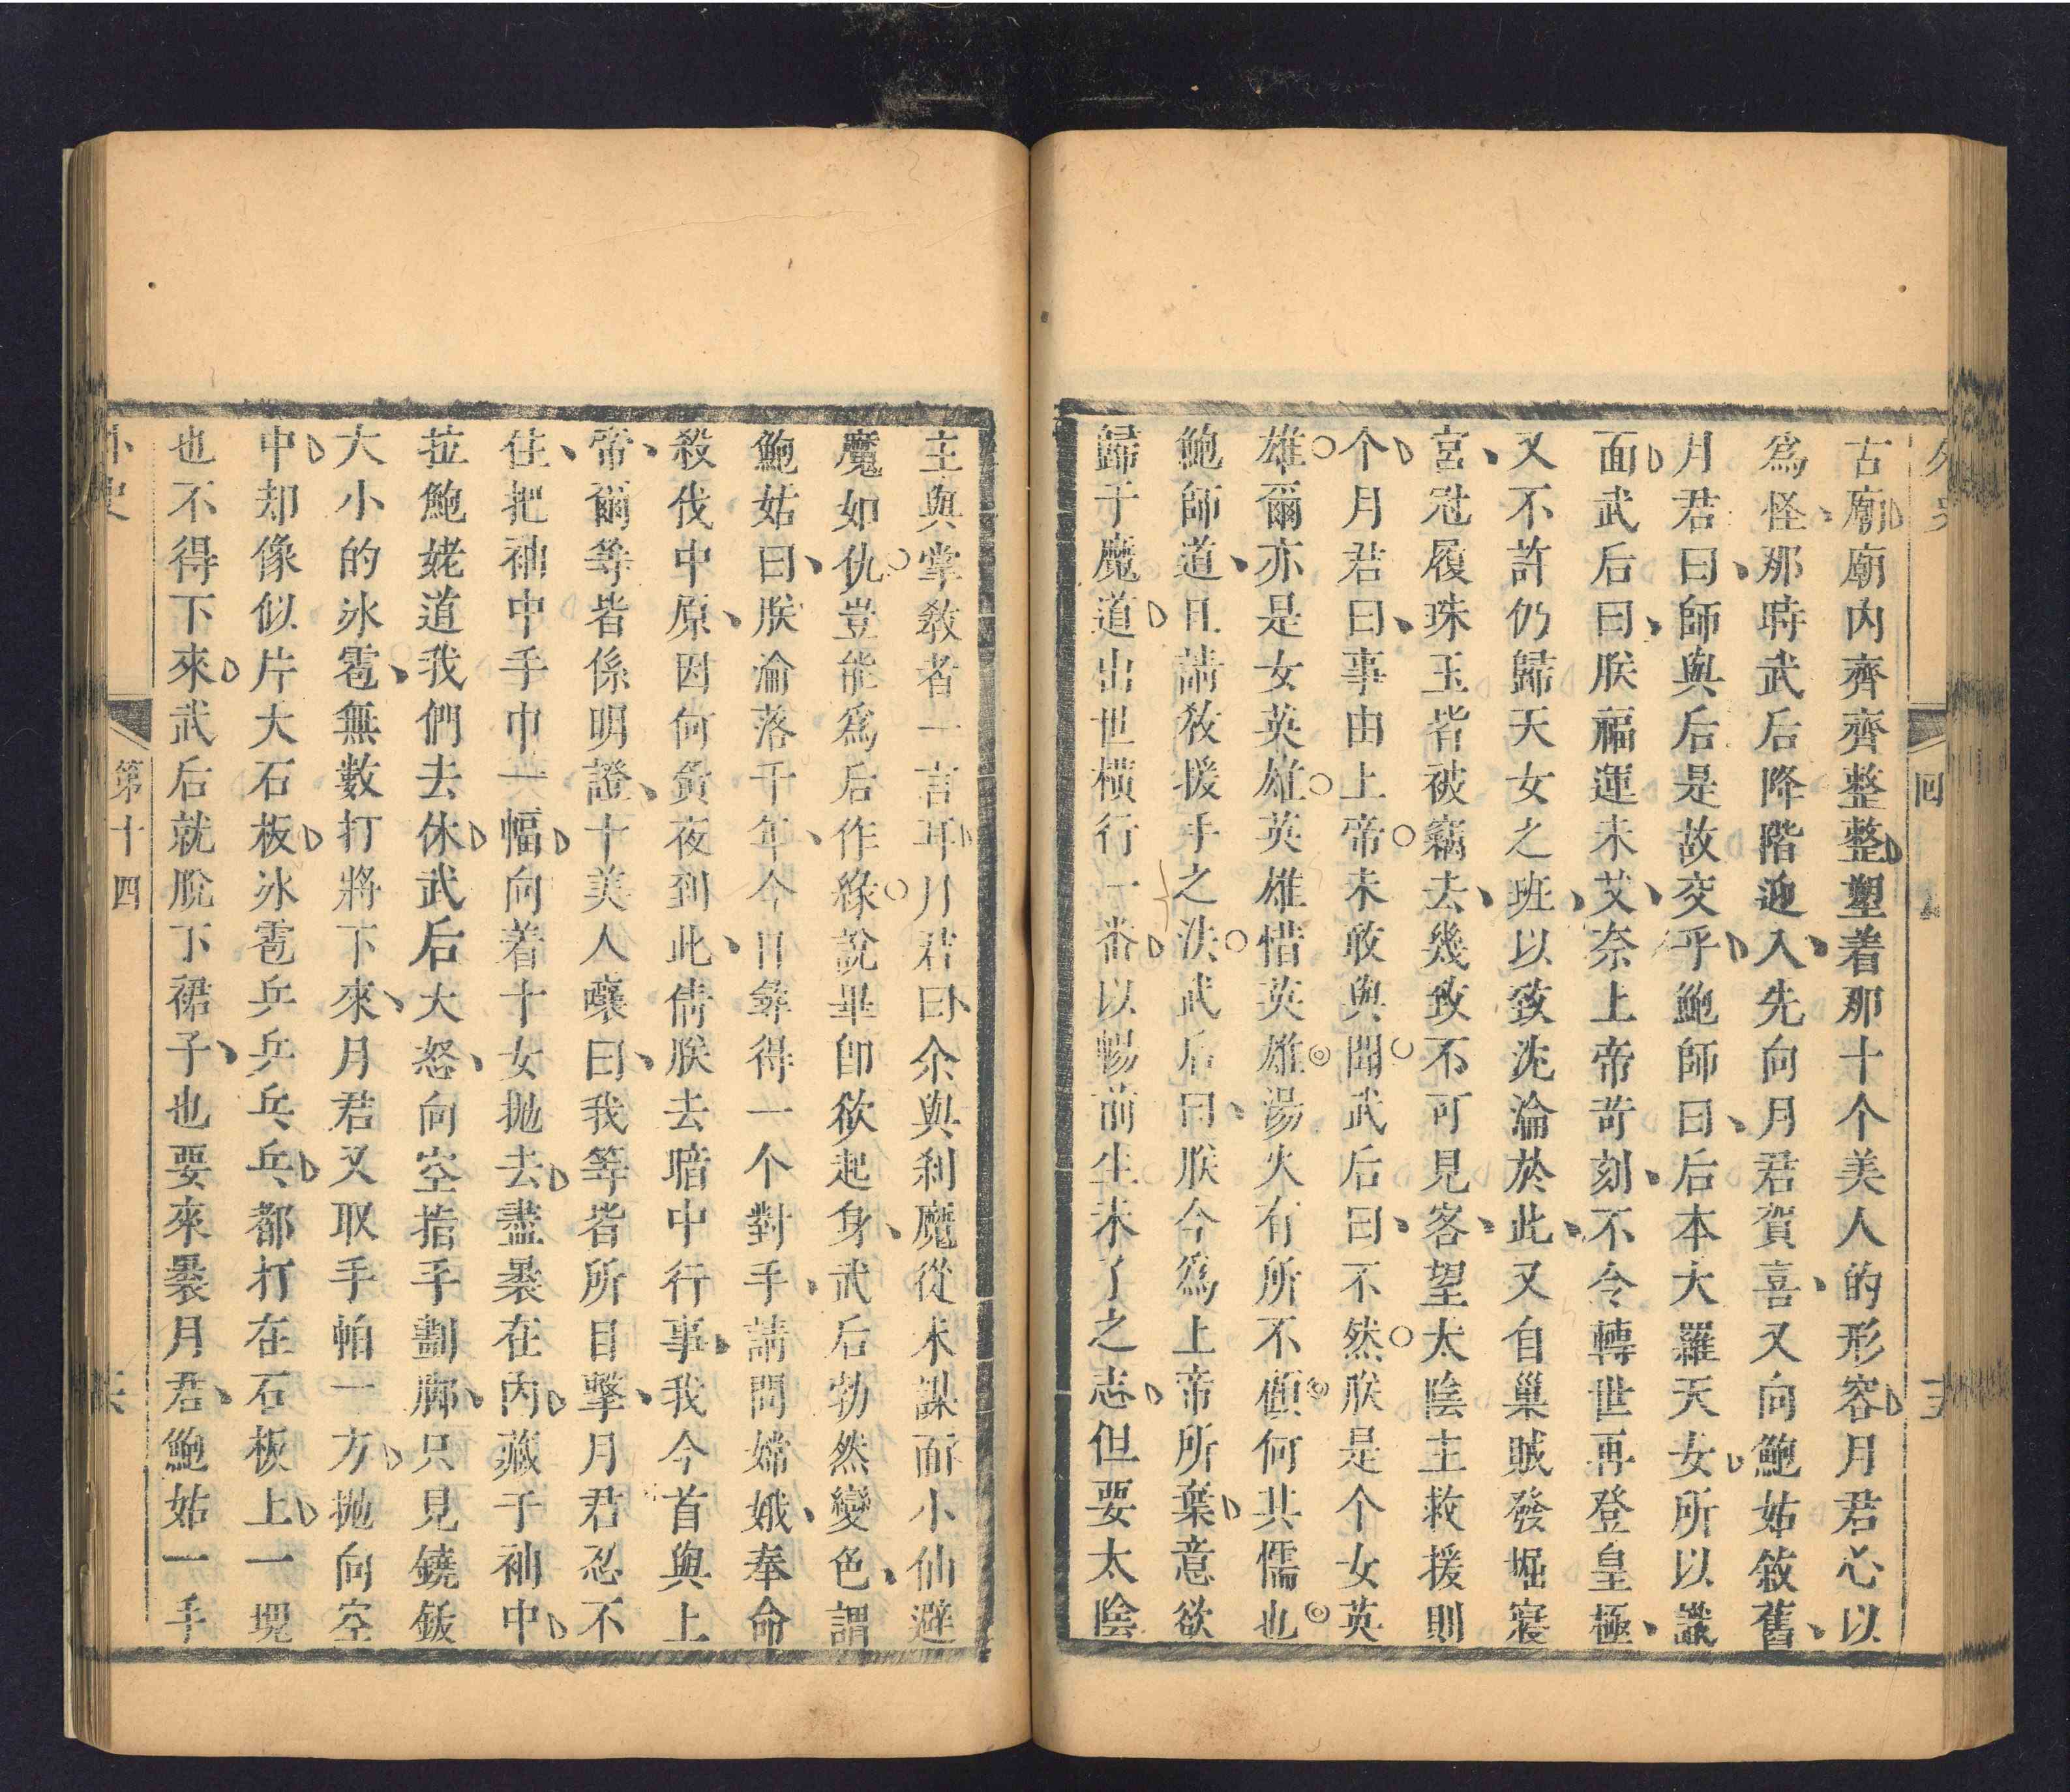 古廟廟内齊齊整整塑着那十个美人的形容月君心以
爲怪那時武后降階迎入先向月君賀喜又向鮑姑敘舊
月君曰師與后是故交乎鮑師曰后本大羅天女所以識
面武后曰朕福運未艾奈上帝苛刻不令轉世再登皇極
又不許仍歸天女之班以致沈淪於此又自巢賊發堀寢
宮冠履珠玉皆被竊去幾致不可見客望太陰主救援則
个月君曰事由上帝未敢與聞武后曰不然朕是个女英
雄爾亦是女英雄英雄惜英雄湯火有所不顧何其懦也
鮑師道且請教援手之法武后曰朕今爲上帝所棄意欲
歸于魔道出世橫行一番以暢前生未了之志但要太陰
主與掌教者一言耳月君曰余與刹魔從未謀面小仙避
魔如仇豈能爲后作緣說畢卽欲起身武后勃然變色謂
鮑姑曰朕淪落千年今日纔得一个對手請問嫦娥奉命
殺伐中原因何黉夜到此倩朕去暗中行事我今首與上
帝爾等皆係明證十美人讓曰我等皆所目擊月君忍不
住把袖中手巾一幅向着十女拋去盡裹在內藏于袖中
拉鮑姥道我們去休武后大怒向空指手劃脚只見鐃鈸
大小的冰雹無數打將下來月君又取手帕一方拋向空
中却像似片大石板冰雹乒乒乓乓都打在石板上一塊
也不得下來武后就脫下裙子也要來裹月君鮑姑一手
外史
第十四